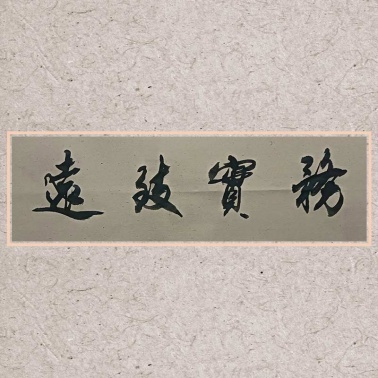 務實致遠